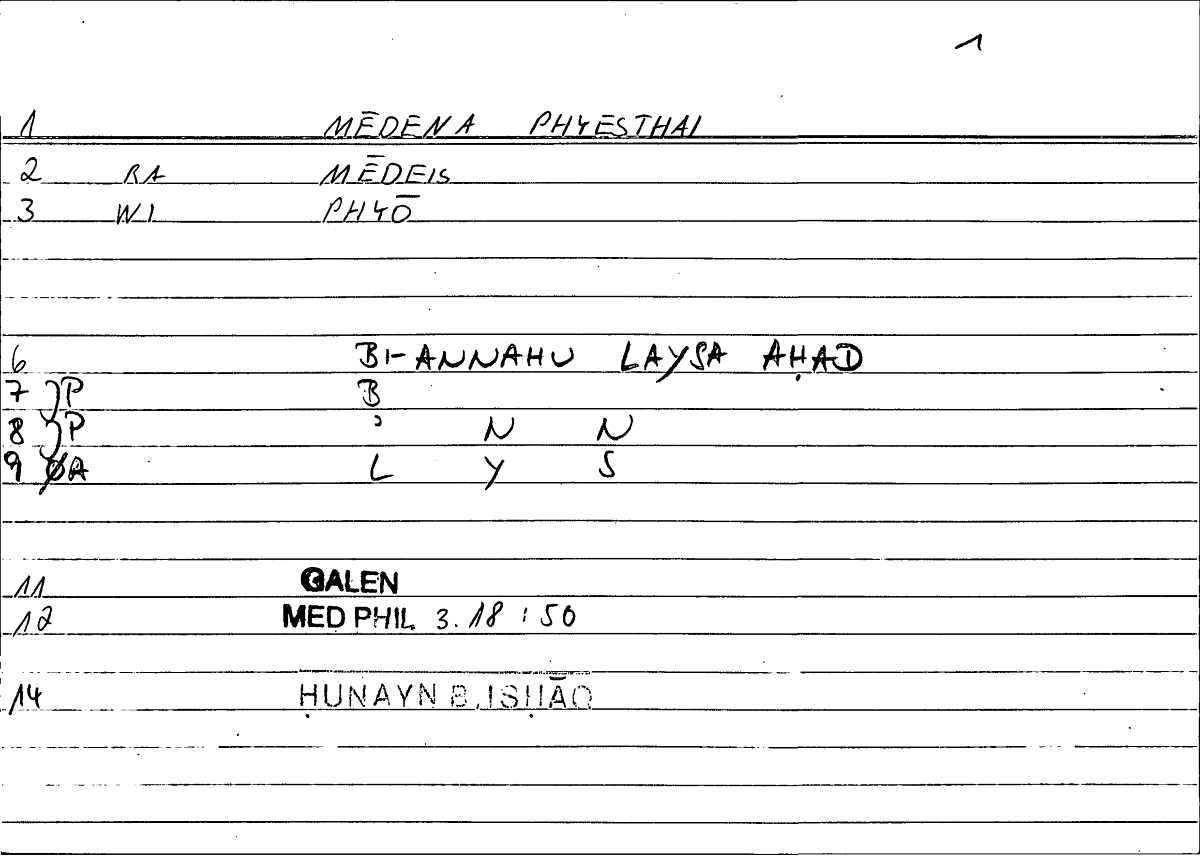 1
1 MĒDENA PHYESTHAI
2 RA MĒDEIS
3 WI PHYŌ
6 BI-ANNAHU LAYSA AḤAD
7 P B
8 P ʾ N N
9 A L Y S
11 GALEN
12 MED PHIL 3.18 : 50
14 ḤUNAYN B. ISḤĀQ